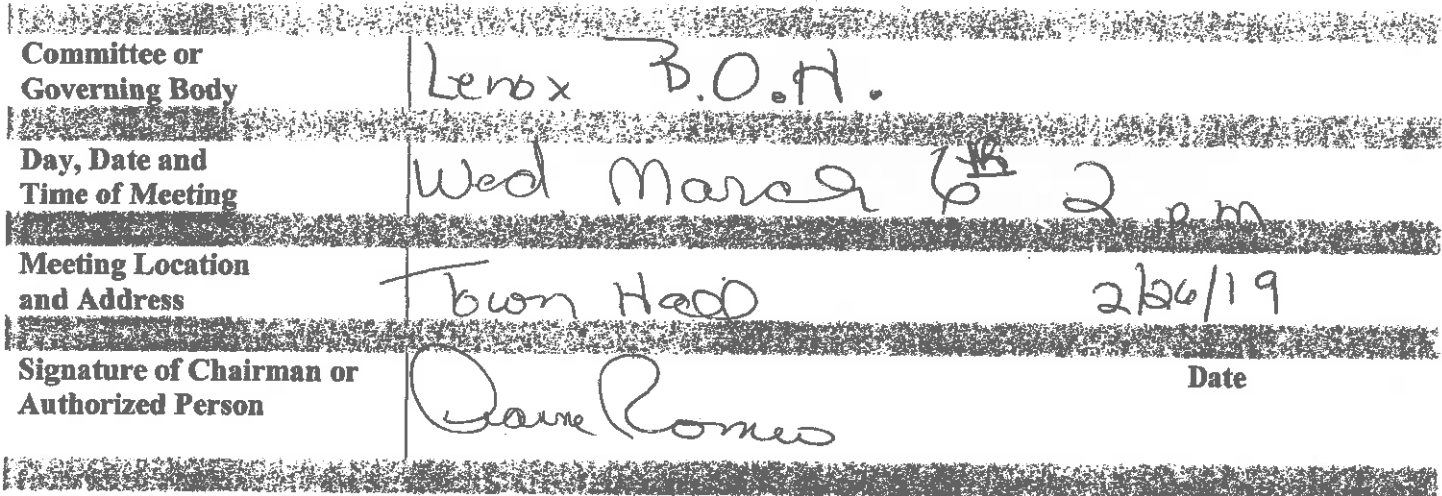 Committee or
Governing Body
Lenox B.O.H.
Day, Date and
Time of Meeting
Wed March 6th 2 pm
Meeting Location
and Address
Town Hall 2/26/19
Signature of Chairman or
Authorized Person
Romeo
Date